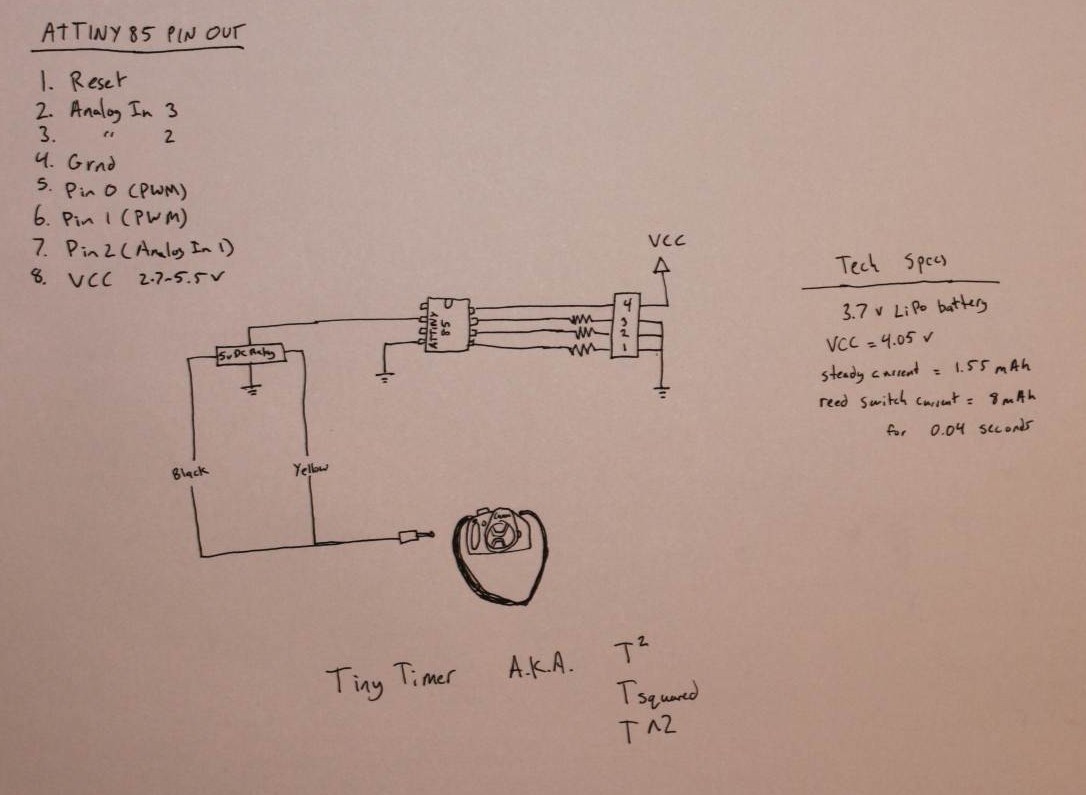 ATTINY 85 PIN OUT
1. Reset
2. Analog In 3
3. " 2
4. Grnd
5. Pin 0 (PWM)
6. Pin 1 (PWM)
7. Pin 2 (Analog In 1)
8. VCC 2.7-5.5v
VCC
4
3
2
1
ATTINY
85
5v DC Relay
Black
Yellow
Canon
Tech Specs
3.7 v LiPo battery
VCC = 4.05 v
steady current = 1.55 mAh
reed switch current = 8 mAh
for 0.04 seconds
Tiny Timer A.K.A. T²
T squared
T ^2